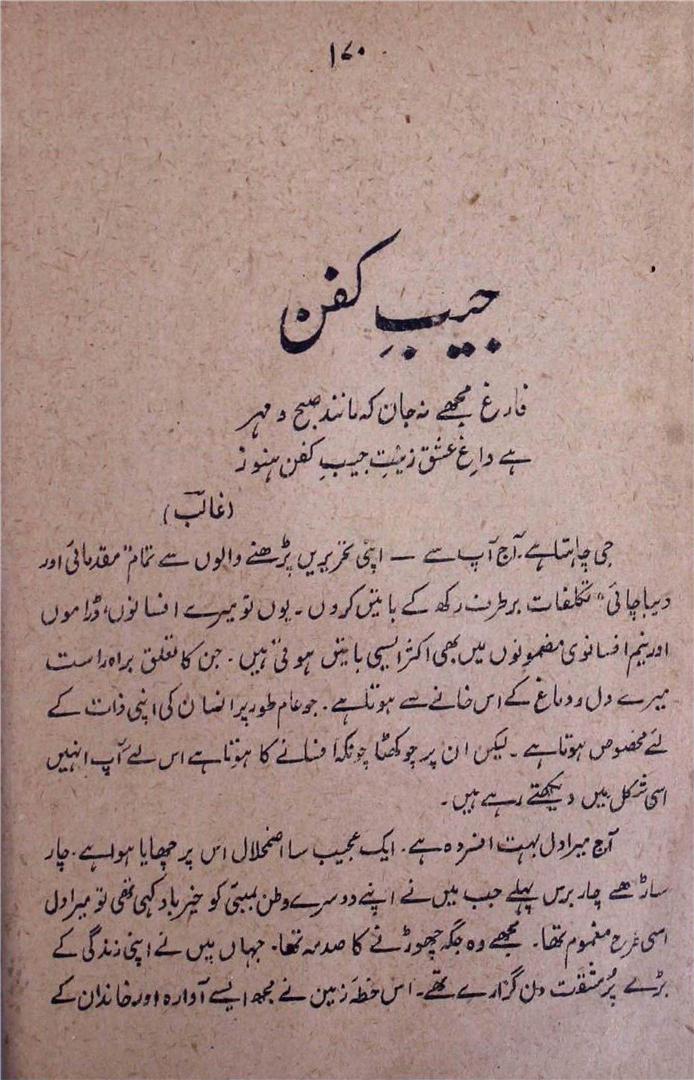 ۱۷۰
جیبِ کفن
فارغ مجھے نہ جان کہ مانند صبح و مہر
ہے داغِ عشق زینتِ جیبِ کفن ہنوز
(غالبؔ)
جی چاہتا ہے۔ آج آپ سے — اپنی تحریریں پڑھنے والوں سے تمام "مقدماتی اور
دیباچائی" تکلفات برطرف رکھ کے باتیں کروں۔ یوں تو میرے افسانوں، ڈراموں
اور نیم افسانوی مضمونوں میں بھی اکثر ایسی باتیں ہوتی ہیں۔ جن کا تعلق براہ راست
میرے دل و دماغ کے اس خانے سے ہوتا ہے۔ جو عام طور پر انسان کی اپنی ذات کے
لئے مخصوص ہوتا ہے۔ لیکن ان پر چوکھٹا چونکہ افسانے کا ہوتا ہے اس لئے آپ انہیں
اسی شکل میں دیکھتے رہے ہیں۔
آج میرا دل بہت افسردہ ہے۔ ایک عجیب سا اضمحلال اس پر چھایا ہوا ہے۔ چار
ساڑھے چار برس پہلے جب میں نے اپنے دوسرے وطن بمبئی کو خیرباد کہی تھی تو میرا دل
اسی طرح مغموم تھا۔ مجھے وہ جگہ چھوڑنے کا صدمہ تھا۔ جہاں میں نے اپنی زندگی کے
بڑے پُرمشقت دن گزارے تھے۔ اس خطۂ زمین نے مجھ ایسے آوارہ اور خاندان کے